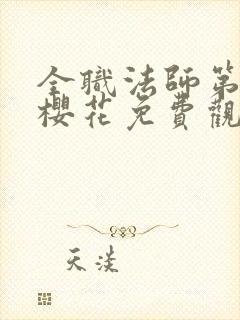 全職法師第
櫻花免費觀
天漢